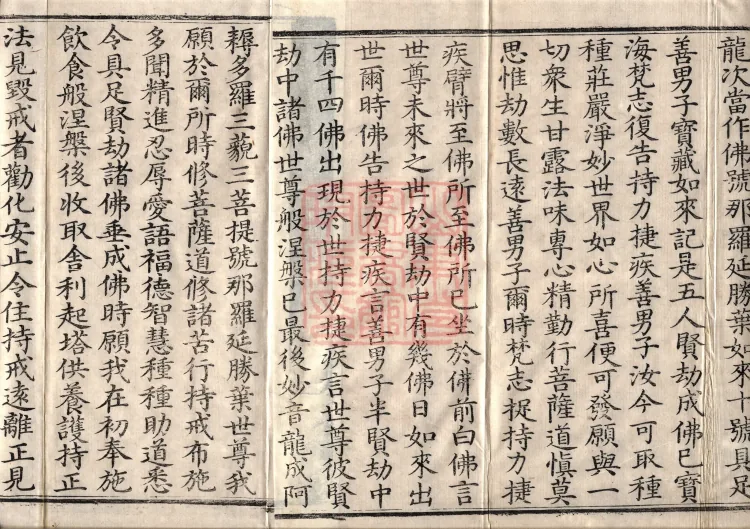 龍次當作佛號那羅延勝葉如來十號具足
善男子寶藏如來記是五人賢劫成佛巳寶
海梵志復告持力捷疾善男子汝今可取種
種莊嚴淨妙世界如心所喜便可發願與一
切衆生甘露法味專心精勤行菩薩道慎莫
思惟劫數長遠善男子爾時梵志捉持力捷
疾臂將至佛所至佛所巳坐於佛前白佛言
世尊未來之世於賢劫中有幾佛日如來出
世爾時佛告持力捷疾言善男子半賢劫中
有千四佛出現於世持力捷疾言世尊彼賢
劫中諸佛世尊般涅槃巳最後妙音龍成阿
耨多羅三藐三菩提號那羅延勝葉世尊我
願於爾所時修菩薩道修諸苦行持戒布施
多聞精進忍辱愛語福德智慧種種助道悉
令具足賢劫諸佛垂成佛時願我在初奉施
飲食般涅槃後收取舍利起塔供養護持正
法見毀戒者勸化安止令住持戒遠離正見